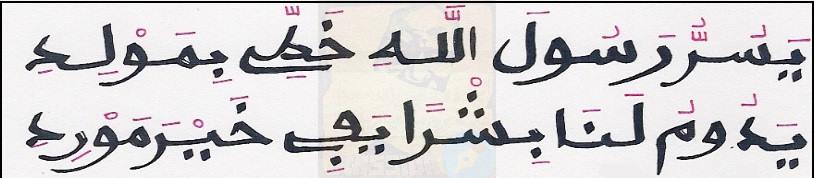 يَسُرُّ رَسُولَ اللَّهِ خَطِّي بِمَوْلِدِ
يَدُومُ لَنَا بِشْرًا يَفِي خَيْرَ مَوْرِدِ